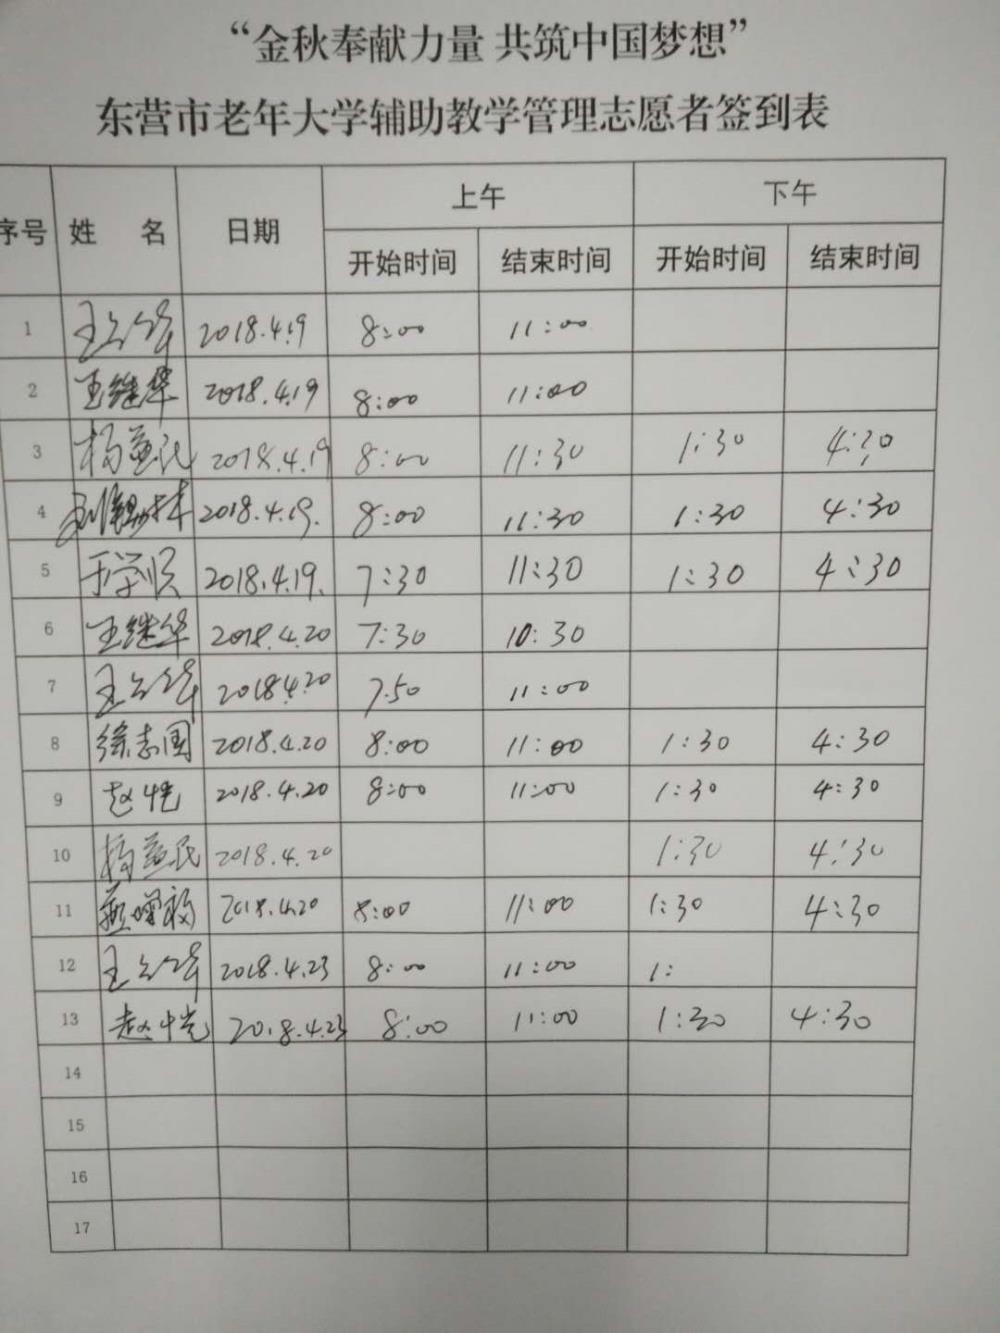 “金秋奉献力量 共筑中国梦想”
东营市老年大学辅助教学管理志愿者签到表
序号 姓 名 日期 上午 下午
开始时间 结束时间 开始时间 结束时间
1 2018.4.19 8:00 11:00
2 王继华 2018.4.19 8:00 11:00
3 2018.4.19 8:00 11:30 1:30 4:30
4 2018.4.19. 8:00 11:30 1:30 4:30
5 于学顺 2018.4.19. 7:30 11:30 1:30 4:30
6 王继华 2018.4.20 7:30 10:30
7 2018.4.20 7.50 11:00
8 徐志国 2018.4.20 8:00 11:00 1:30 4:30
9 赵恺 2018.4.20 8:00 11:00 1:30 4:30
10 2018.4.20 1:30 4:30
11 2018.4.20 8:00 11:00 1:30 4:30
12 2018.4.23 8:00 11:00 1:
13 赵恺 2018.4.23 8:00 11:00 1:30 4:30
14
15
16
17